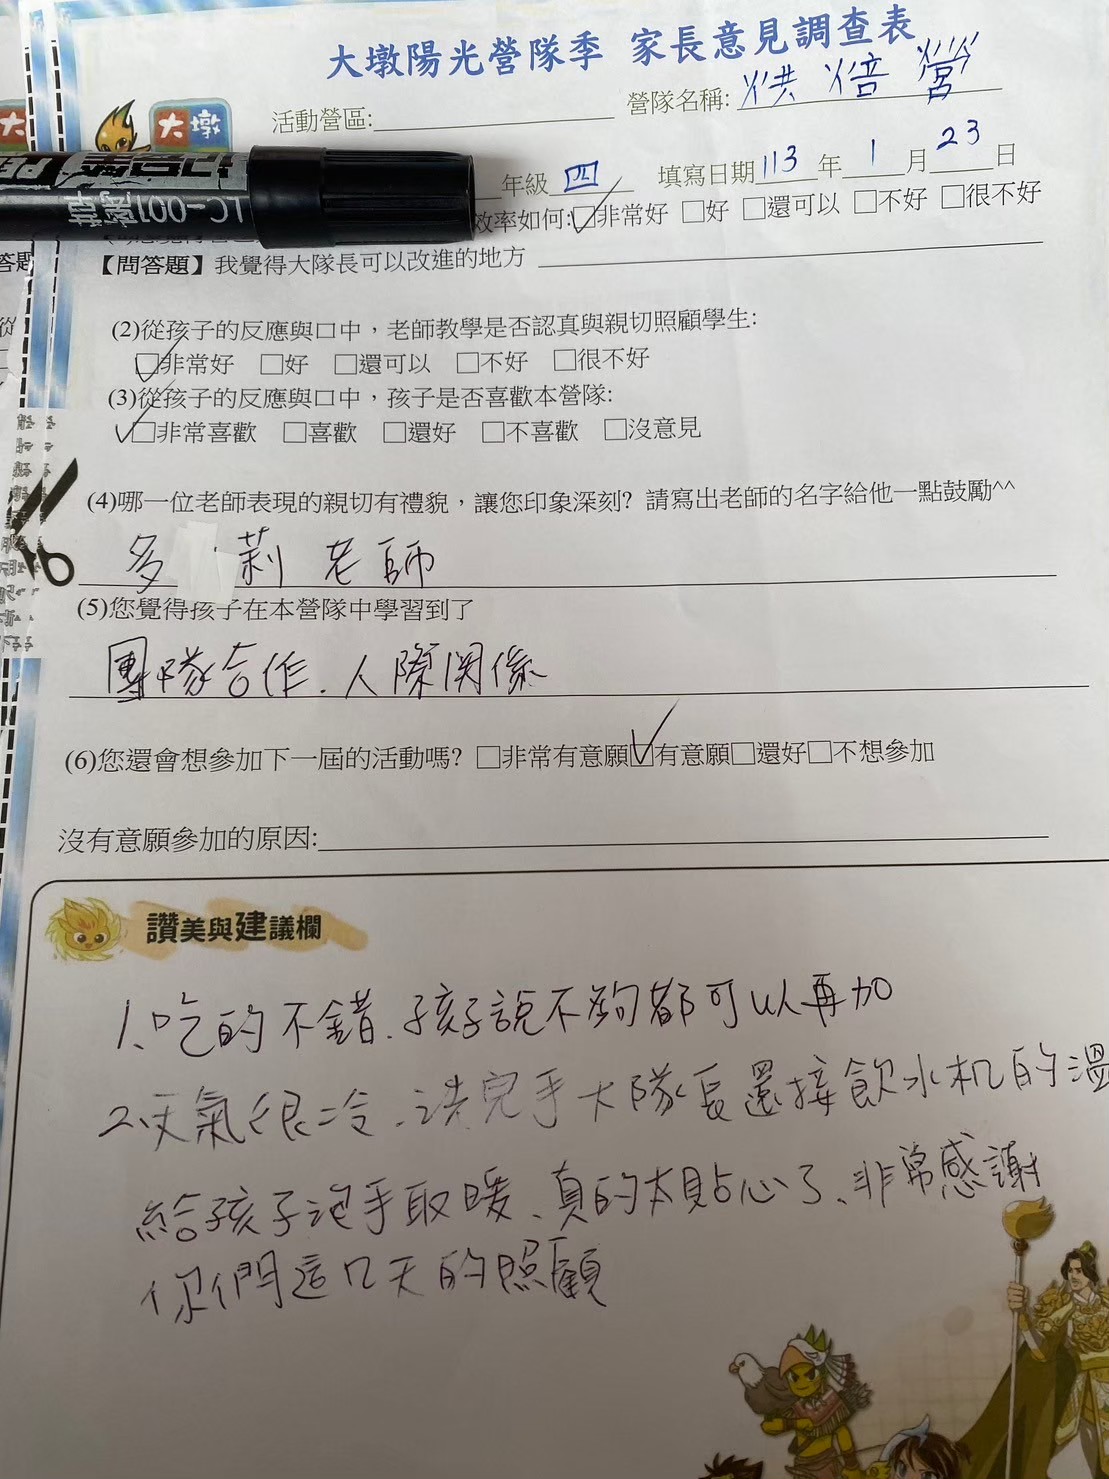 大墩陽光營隊季 家長意見調查表
活動營區: 營隊名稱: 烘焙營
大墩
年級 四 填寫日期 113 年 1 月 23 日
效率如何:☑非常好 □好 □還可以 □不好 □很不好
【問答題】我覺得大隊長可以改進的地方
(2)從孩子的反應與口中，老師教學是否認真與親切照顧學生:
☑非常好 □好 □還可以 □不好 □很不好
(3)從孩子的反應與口中，孩子是否喜歡本營隊:
☑非常喜歡 □喜歡 □還好 □不喜歡 □沒意見
(4)哪一位老師表現的親切有禮貌，讓您印象深刻? 請寫出老師的名字給他一點鼓勵^^
多 莉 老師
(5)您覺得孩子在本營隊中學習到了
團隊合作、人際関係
(6)您還會想參加下一屆的活動嗎? □非常有意願☑有意願□還好□不想參加
沒有意願參加的原因:
讚美與建議欄
1、吃的不錯、孩子說不夠都可以再加
2、天氣很冷、洗完手大隊長還接飲水机的溫
給孩子泡手取暖、真的太貼心了、非常感謝
你們這几天的照顧